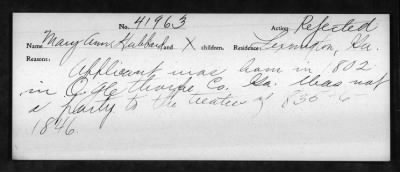 No. 41963 Action: Rejected
Name Mary Ann Hubbard and X children. Residence: Lexington, Ga.
Reasons:
Applicant was born in 1802
in Oglethorpe Co. Ga. Was not
a party to the treaties of 1835-6
1846.